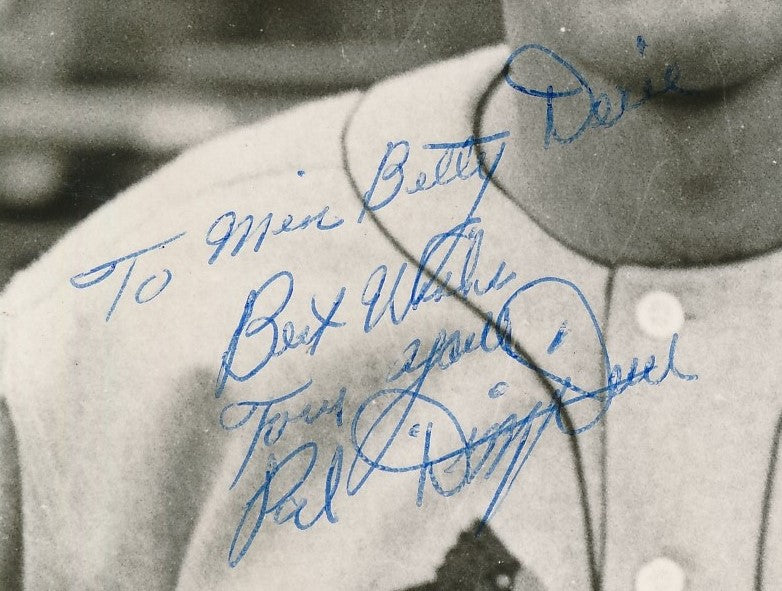 To Miss Betty Davis
Best Wishes
From your
Pal "Dizzy" Dean